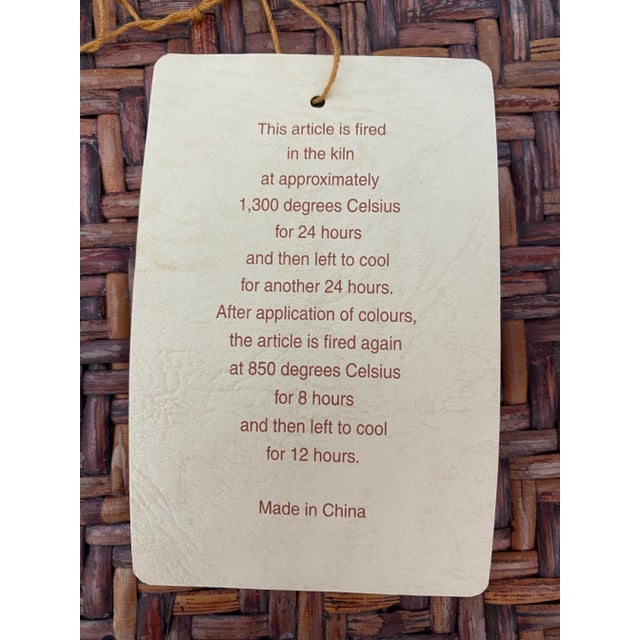 This article is fired
in the kiln
at approximately
1,300 degrees Celsius
for 24 hours
and then left to cool
for another 24 hours.
After application of colours,
the article is fired again
at 850 degrees Celsius
for 8 hours
and then left to cool
for 12 hours.
Made in China